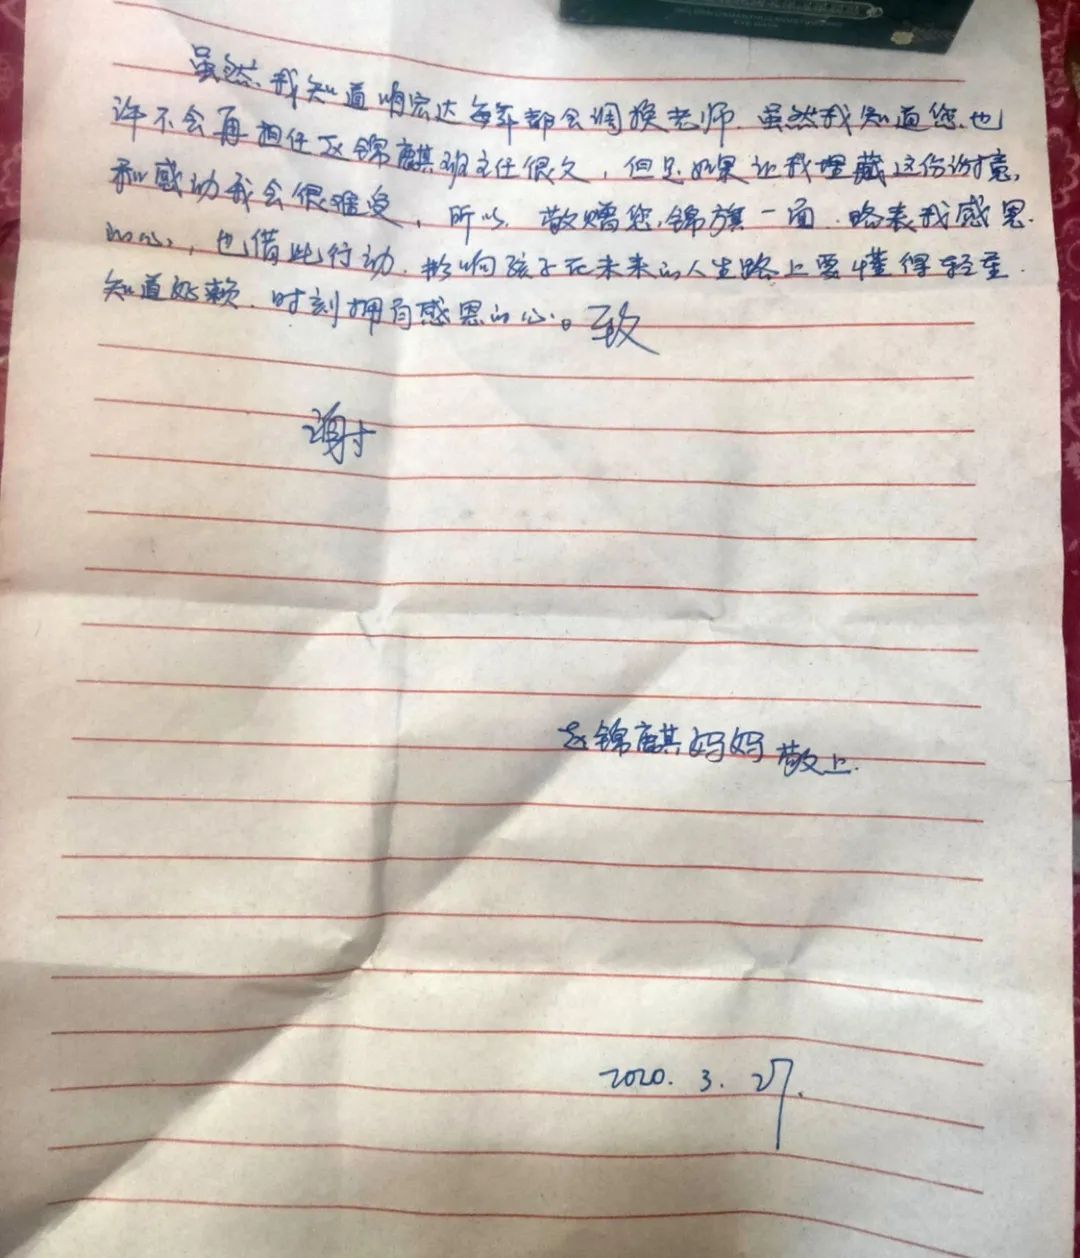 虽然我知道响宏达每年都会调换老师.虽然我知道您也
许不会再担任赵锦麒班主任很久,但是如果让我埋藏这份谢意,
和感动我会很难受,所以,敬赠您锦旗一面.略表我感恩
的心,也借此行动.影响孩子在未来的人生路上要懂得轻重.
知道好赖.时刻拥有感恩的心。致
谢
赵锦麒妈妈敬上.
2020.3.27.